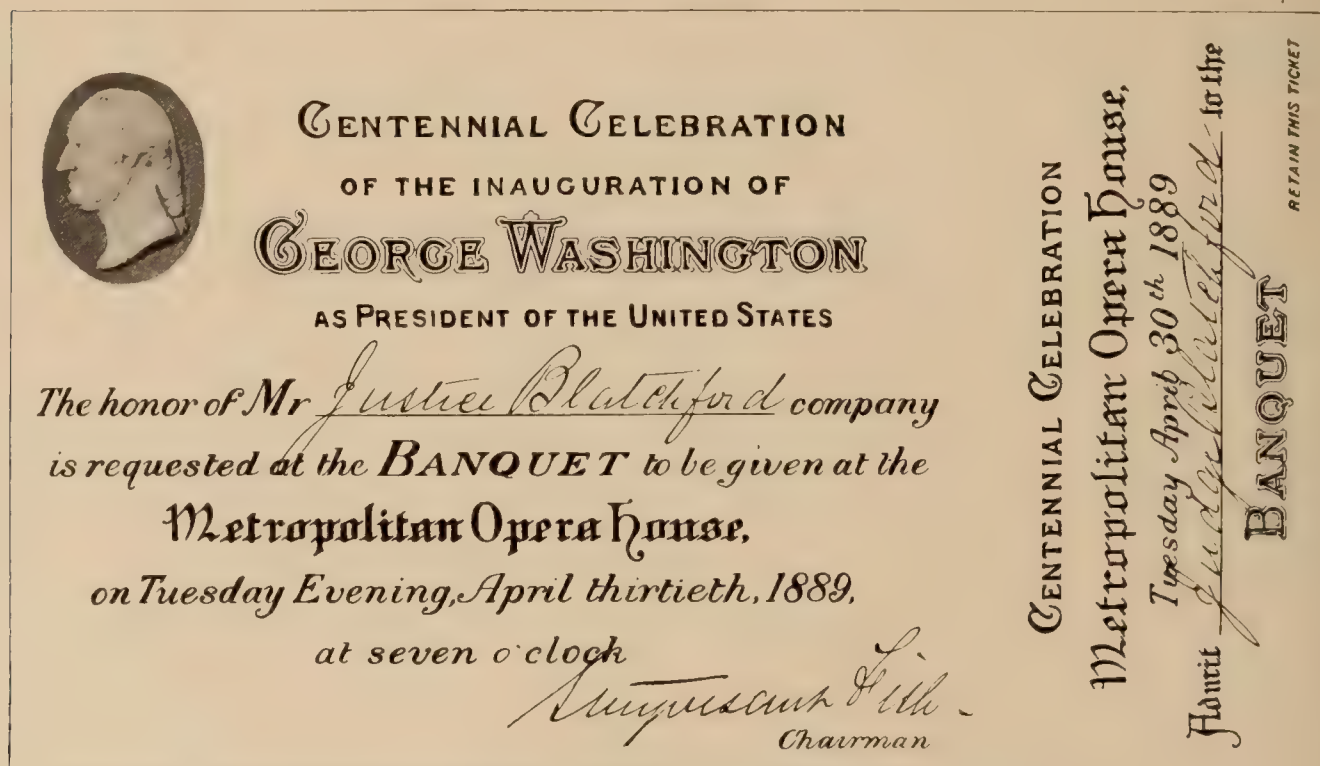 CENTENNIAL CELEBRATION
OF THE INAUGURATION OF
GEORGE WASHINGTON
AS PRESIDENT OF THE UNITED STATES
The honor of Mr Justice Blatchford company
is requested at the BANQUET to be given at the
Metropolitan Opera House,
on Tuesday Evening, April thirtieth, 1889,
at seven o'clock
Stuyvesant Fish
Chairman
CENTENNIAL CELEBRATION
Metropolitan Opera House,
Tuesday April 30th 1889
Admit Judge Blatchford to the
BANQUET
RETAIN THIS TICKET